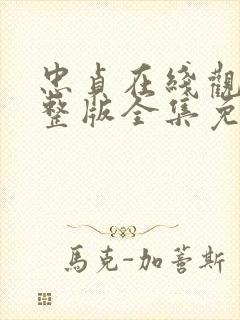 忠貞在綫觀
整版全集免
馬克-加蓄斯